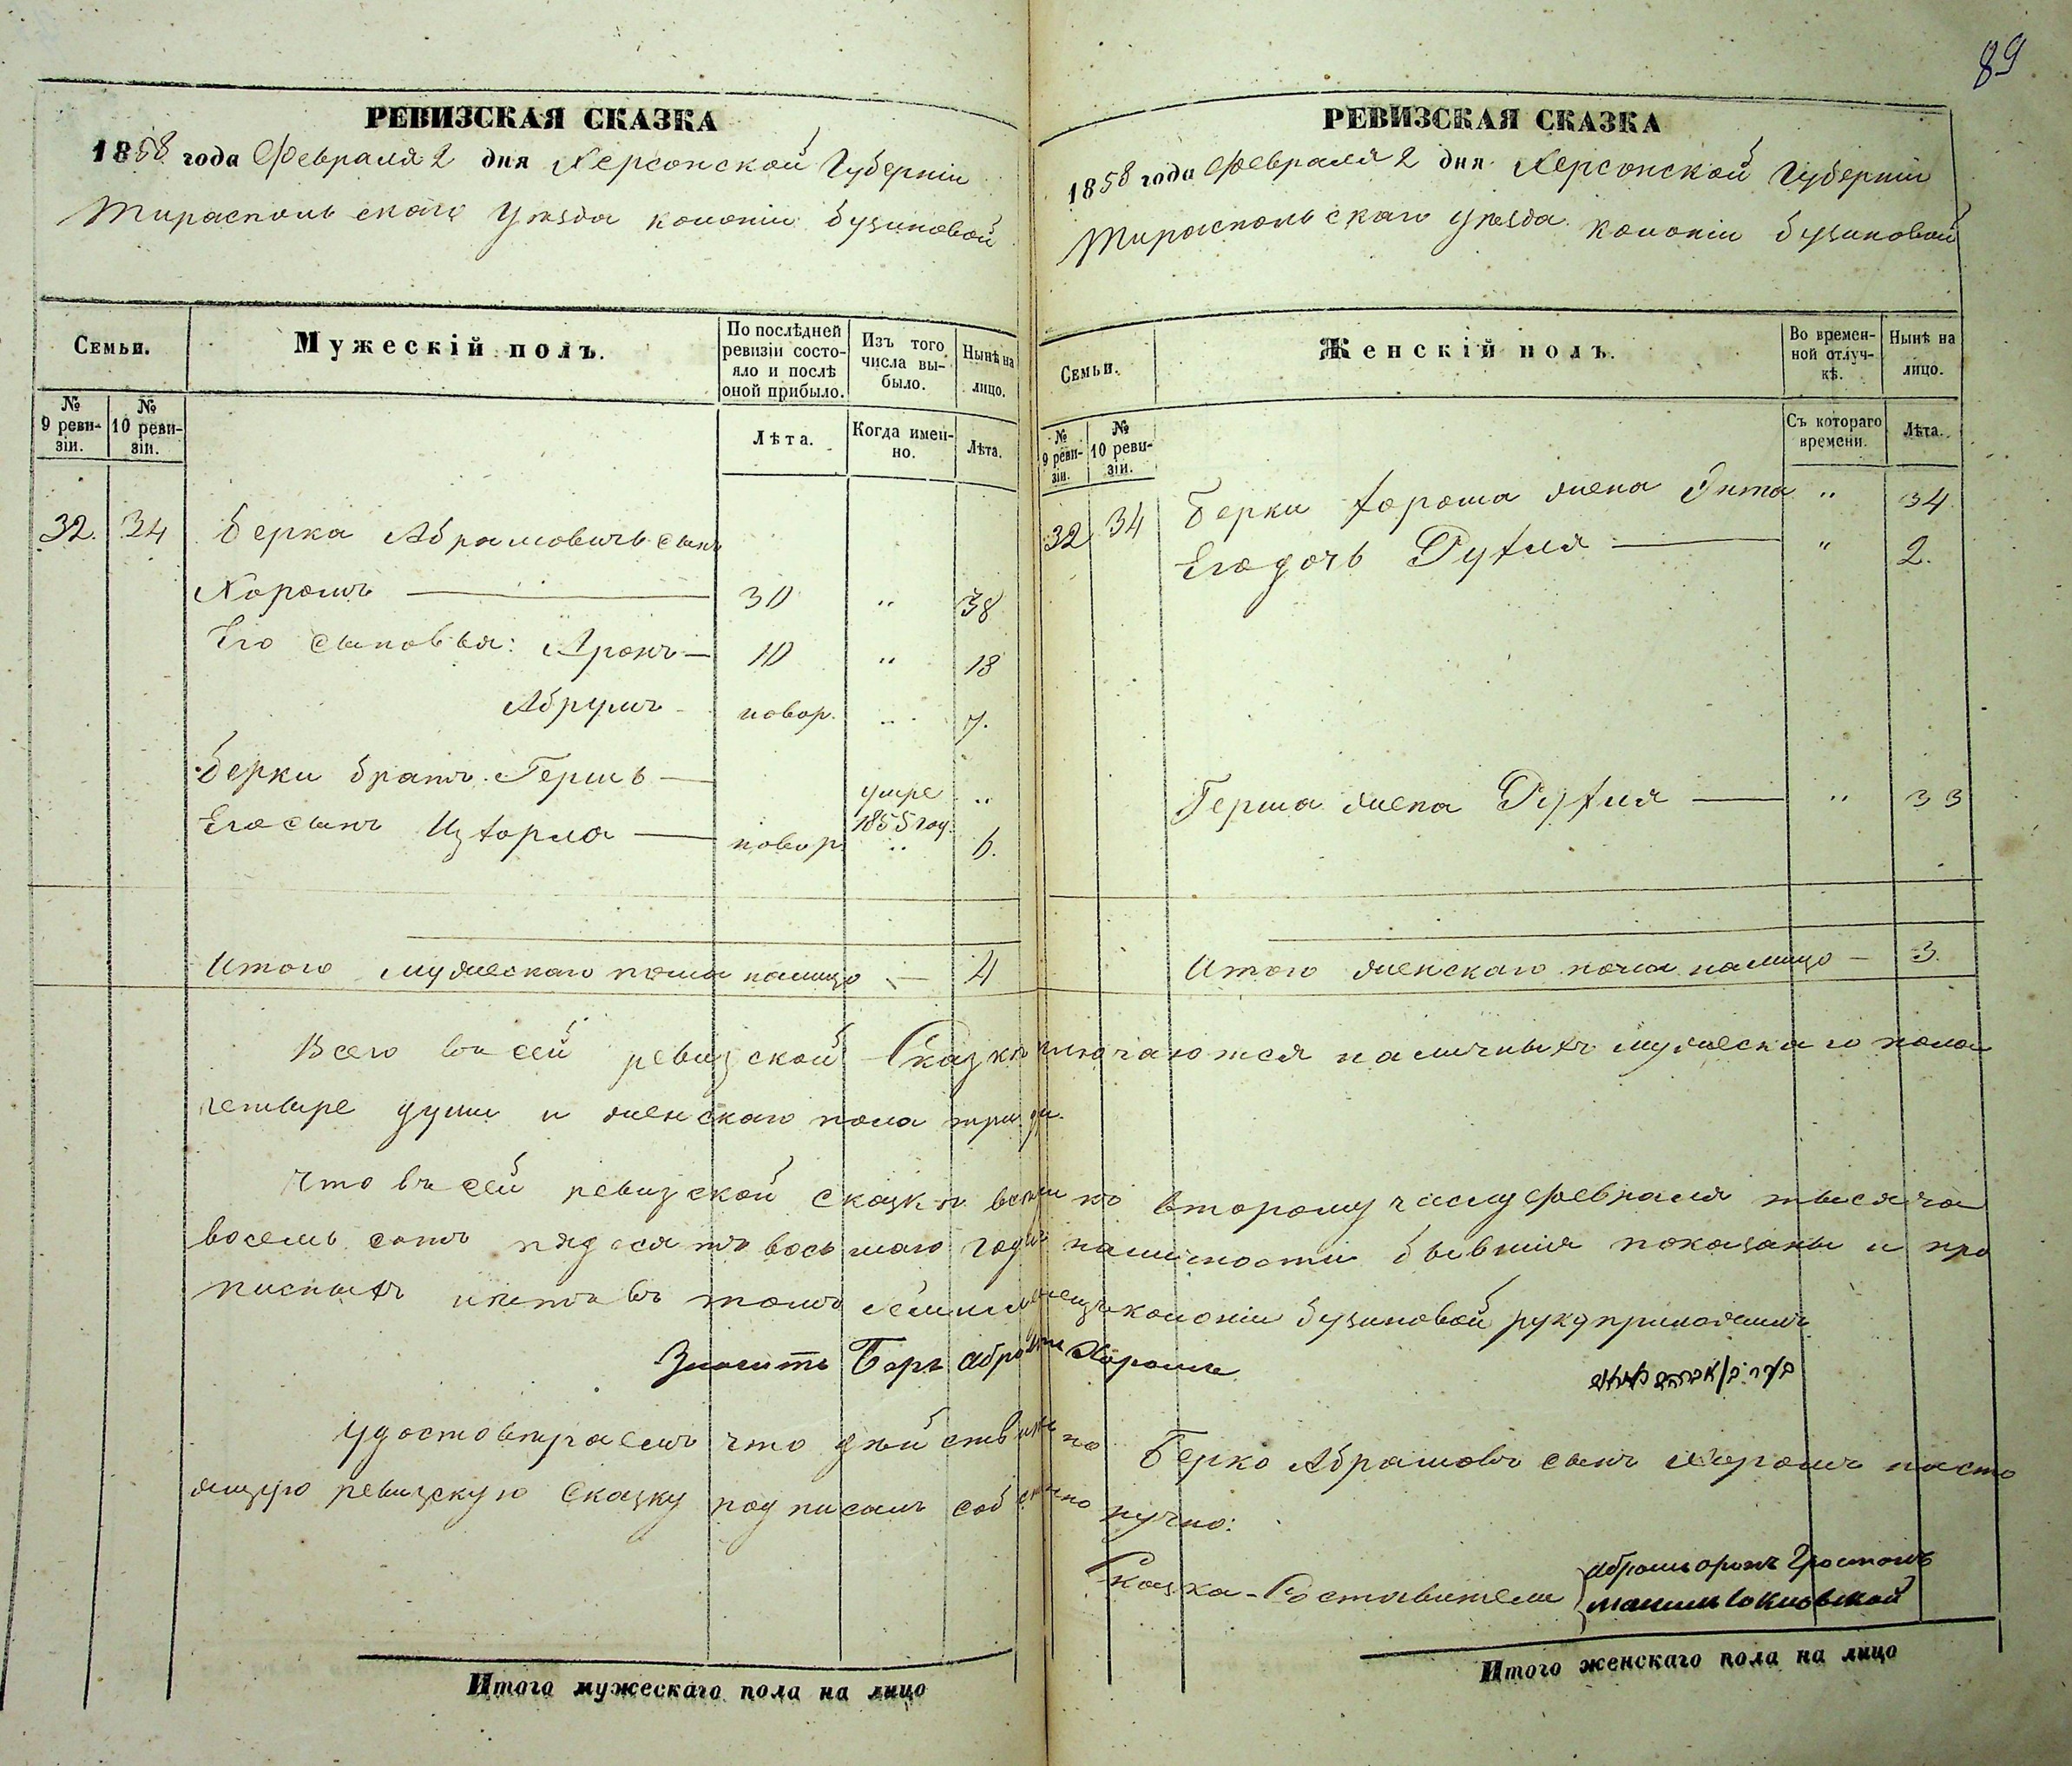 89
РЕВИЗСКАЯ СКАЗКА
1858 года Февраля 2 дня Херсонской Губерніи
Тираспольскаго Уѣзда колоніи Бузиновой
Семьи.
Мужескій полъ.
По послѣдней ревизіи состояло и послѣ оной прибыло.
Изъ того числа выбыло.
Нынѣ на лицо.
№ 9 ревизіи.
№ 10 ревизіи.
Лѣта.
Когда именно.
Лѣта.
32. 34 Берка Абрамовичъ сынъ
Хорошъ — 30 " 38
Его сыновья: Аронъ — 10 " 18
Абрумъ — новор. " 7.
Берки братъ Гершъ — умре 1855 год. "
Его сынъ — новор. " 6.
Итого мужескаго пола налицо — 4
РЕВИЗСКАЯ СКАЗКА
1858 года Февраля 2 дня Херсонской Губерніи
Тираспольскаго Уѣзда колоніи Бузиновой
Семьи.
Женскій полъ.
Во временной отлучкѣ.
Нынѣ на лицо.
№ 9 ревизіи.
№ 10 ревизіи.
Съ котораго времени.
Лѣта.
32 34 Берки Хороша жена " 34
Его дочь Рухля — " 2.
Герша жена Рухля — " 33
Итого женскаго пола налицо — 3.
Всего въ сей ревизской Сказкѣ заключаются наличныхъ мужескаго пола
четыре души и женскаго пола три ду.
Что въ сей ревизской сказкѣ всѣ по второму числу Февраля тысяча
восемь сотъ пядесятъ восьмаго года въ наличности бывшія показаны и про
писныхъ нѣтъ въ томъ колоніи Бузиновой руку приложилъ
Значитъ Беръ Хорошъ
Удостовѣряемъ что дѣйствительно Берко Абрамовъ сынъ Хорошъ насто
ящую ревизскую Сказку подписалъ собственно ручно:
Сказка-Составители
Итого мужескаго пола на лицо
Итого женскаго пола на лицо